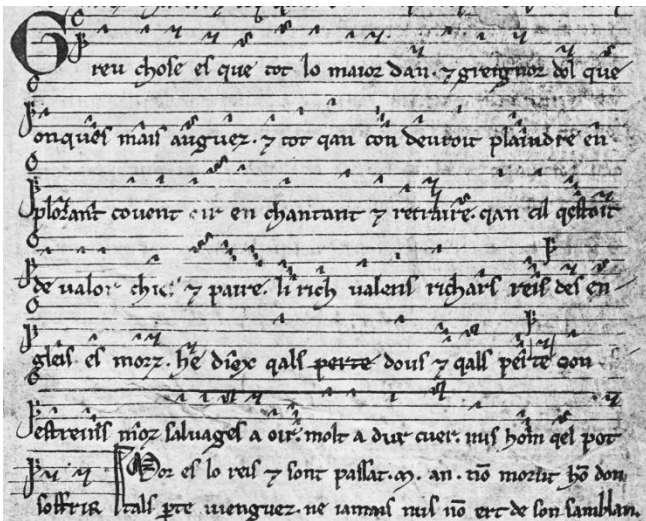 Greu chose es que tot lo maior dan. ⁊ greignor dol que
onques mais auguez. ⁊ tot qan con deuroit plaindre en
plorant covent oir en chantant ⁊ retraire. qan cil qestoit
de valor chief ⁊ paire. li rich valens richars reis des en
gleis es morz. he diex qals perte dous ⁊ qals perte con
estreins moz salvages a oir. molt a dur cuer. nus hom qel pot
Mor es lo reis ⁊ sont passat .M. an. tiō morut hō don
soffrir tals pte vienguez. ne iamais nus nō ert de son samblan.